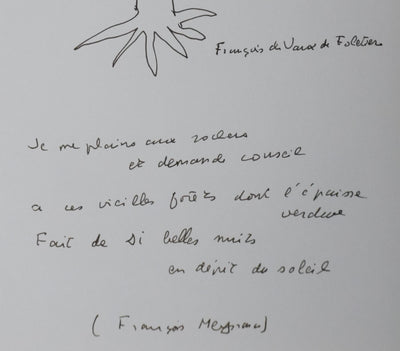 François de Vaux de Foletier
Je me plains aux rochers
et demande conseil
a ces vieilles forêts dont l'épaisse
verdure
Fait de si belles nuits
en dépit du soleil
( François